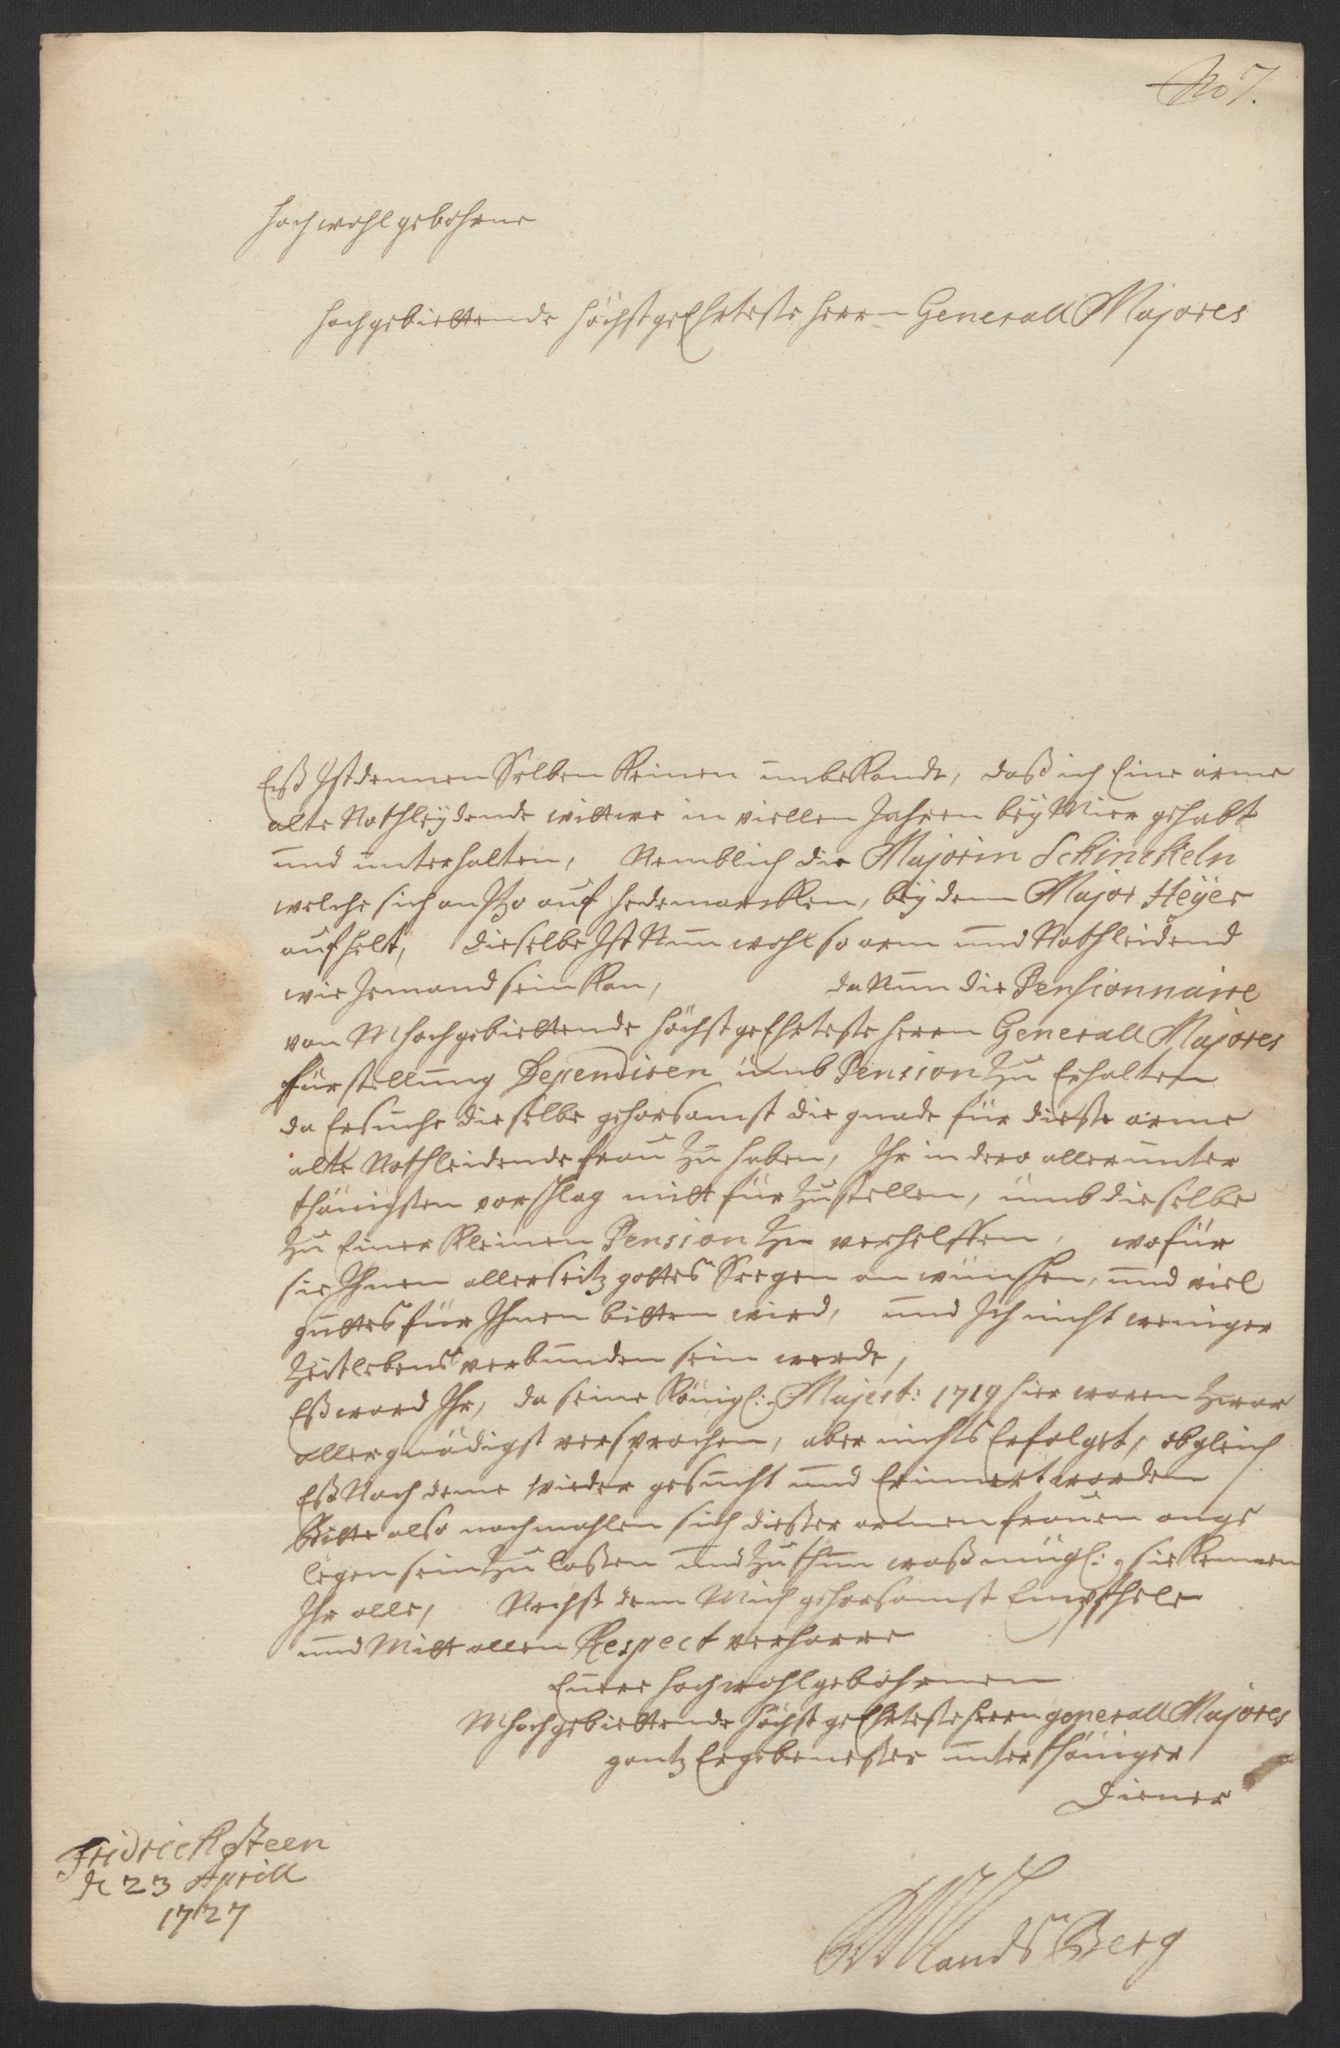 No 7.
Hochwohlgebohrne
Hochgebiettende Höchstgeehrteste Herrn Generall Majores
Eß Ist dennen Selben Keinen unbekandt, daß ich Eine arme
alte Nothleydende wittwe in viellen Jahren bey Mier gehabt
und unterhalten, Nemblich die Majorin Schinckeln
welche sich an itzo auf Hedemarcken, bey dem Major Heyer
aufhelt, dieselbe Ist Nun wohl so arm und Nothleidend
wie Jemand sein kan, da Nun die Pensionnaire
von MHochgebiettende Höchstgeehrteste Herrn Generall Majores
fürstellung Dependiren umb Pension zu Erhalten
da Ersuche dieselbe gehorsamst die gnade für dieße arme
alte Nothleidende frau zu haben, Ihr in dero allerunter
thänigsten vorschlag mitt für zustellen, umb dieselbe
zu Einer kleinen Pension zu verhelffen, wofür
sie Ihnen allerseitz gottes Seegen an wünschen, und viel
guttes für Ihnen bitten wird, und Ich nicht weniger
Zeitlebens verbunden sein werde,
Eß ward Ihr, da seine Königl: Majest: 1719 hier waren zwar
allergnädigst versprochen, aber nichts Erfolget, obgleich
Eß Nach deme wieder gesucht und Erinnert worden
Bitte also nochmahlen sich dießer armen frauen ange
legen sein zu laßen und zu thun waß mügl: sie kennen
Ihr alle, Nechst dem Mich gehorsamst Empfhele
und Mitt allen Respect verharre
Euere Hochwohlgebohrnen
MHochgebiettende Höchstgeehrteste Herrn generall Majores
gantz Ergebenester unterthäniger
Diener
Fridrichsteen
d 23 Aprill
1727
Landsberg